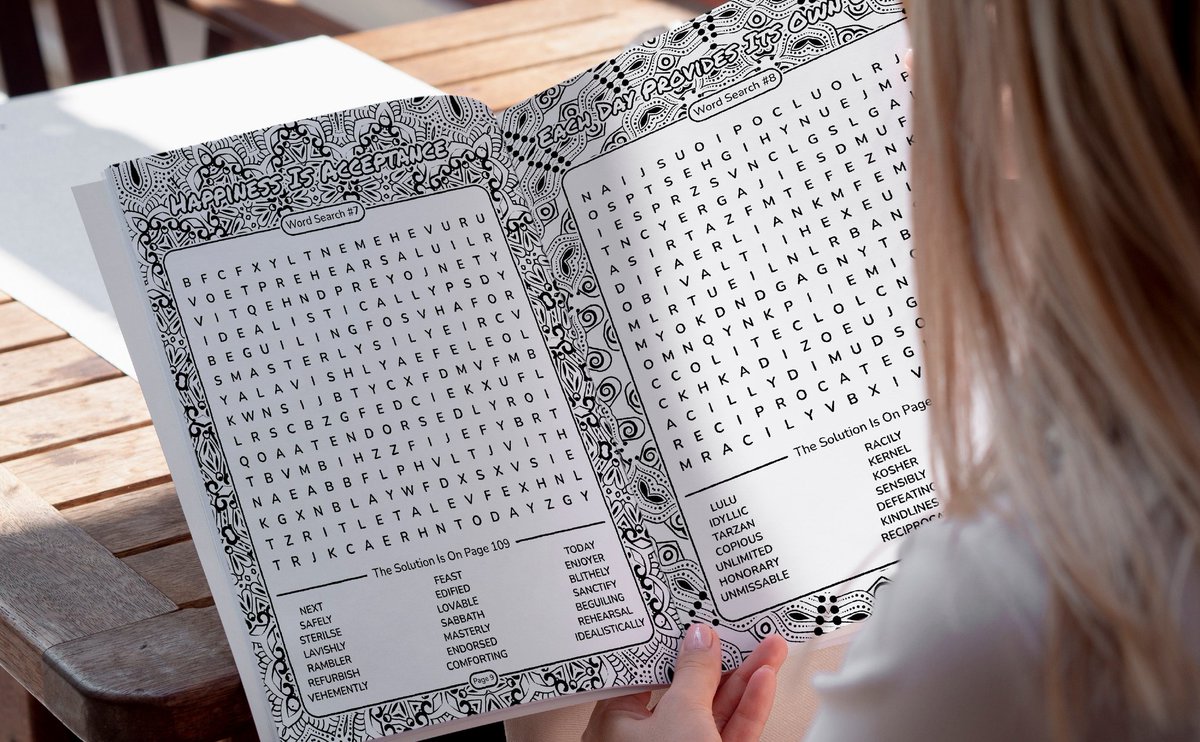 HAPPINESS IS ACCEPTANCE
Word Search #7
B F C F X Y L T N E M E H E V U R U
V O E T P R E H E A R S A L U I L R
V I T Q E H N D P R E Y O J N E T Y
I D E A L I S T I C A L L Y P S D Y
B E G U I L I N G F O S V H A F O R
S M A S T E R L Y S I L Y E I R C V
Y A L A V I S H L Y A E F E L E O L
K W N S I J B T Y C X F D M V F M B
L R S C B Z G F E D C I E K X U F L
Q O A A T E N D O R S E D L Y R O I
T B V M B I H Z Z F I J E F Y B R T
N A E A B B F L P H V L T J V I T H
K G X N B L A Y W F D X S X V S I E
T Z R I T L E T A L E V F E X H N L
T R J K C A E R H N T O D A Y Z G Y
The Solution Is On Page 109
NEXT
SAFELY
STERILSE
LAVISHLY
RAMBLER
REFURBISH
VEHEMENTLY
FEAST
EDIFIED
LOVABLE
SABBATH
MASTERLY
ENDORSED
COMFORTING
TODAY
ENJOYER
BLITHELY
SANCTIFY
BEGUILING
REHEARSAL
IDEALISTICALLY
Page 9
EACH DAY PROVIDES ITS OWN
Word Search #8
N A I J S U O I P O C L U O L R J
O S P T S E H G I H Y N U E J M F
I E S P R Z S V N C L G S L G A
T N C Y E R G A J I E S D M U F
A S F R T A Z F M T E F E Z N K
D I F A E R L I A N K M F E M
O B I V A L T I I H E X E U
M L R T U E I L N L R B A N
M Y O K D N D G A G N Y T B
O M N Q Y N K P I I E M I
C C O L I T E C L O L C N
C K H K A D I Z O E U J
A C I L L Y D I M U D S
R E C I P R O C A T E G
M R A C I L Y V B X I V
The Solution Is On Page
LULU
IDYLLIC
TARZAN
COPIOUS
UNLIMITED
HONORARY
UNMISSABLE
RACILY
KERNEL
KOSHER
SENSIBLY
DEFEATING
KINDLINES
RECIPROCA